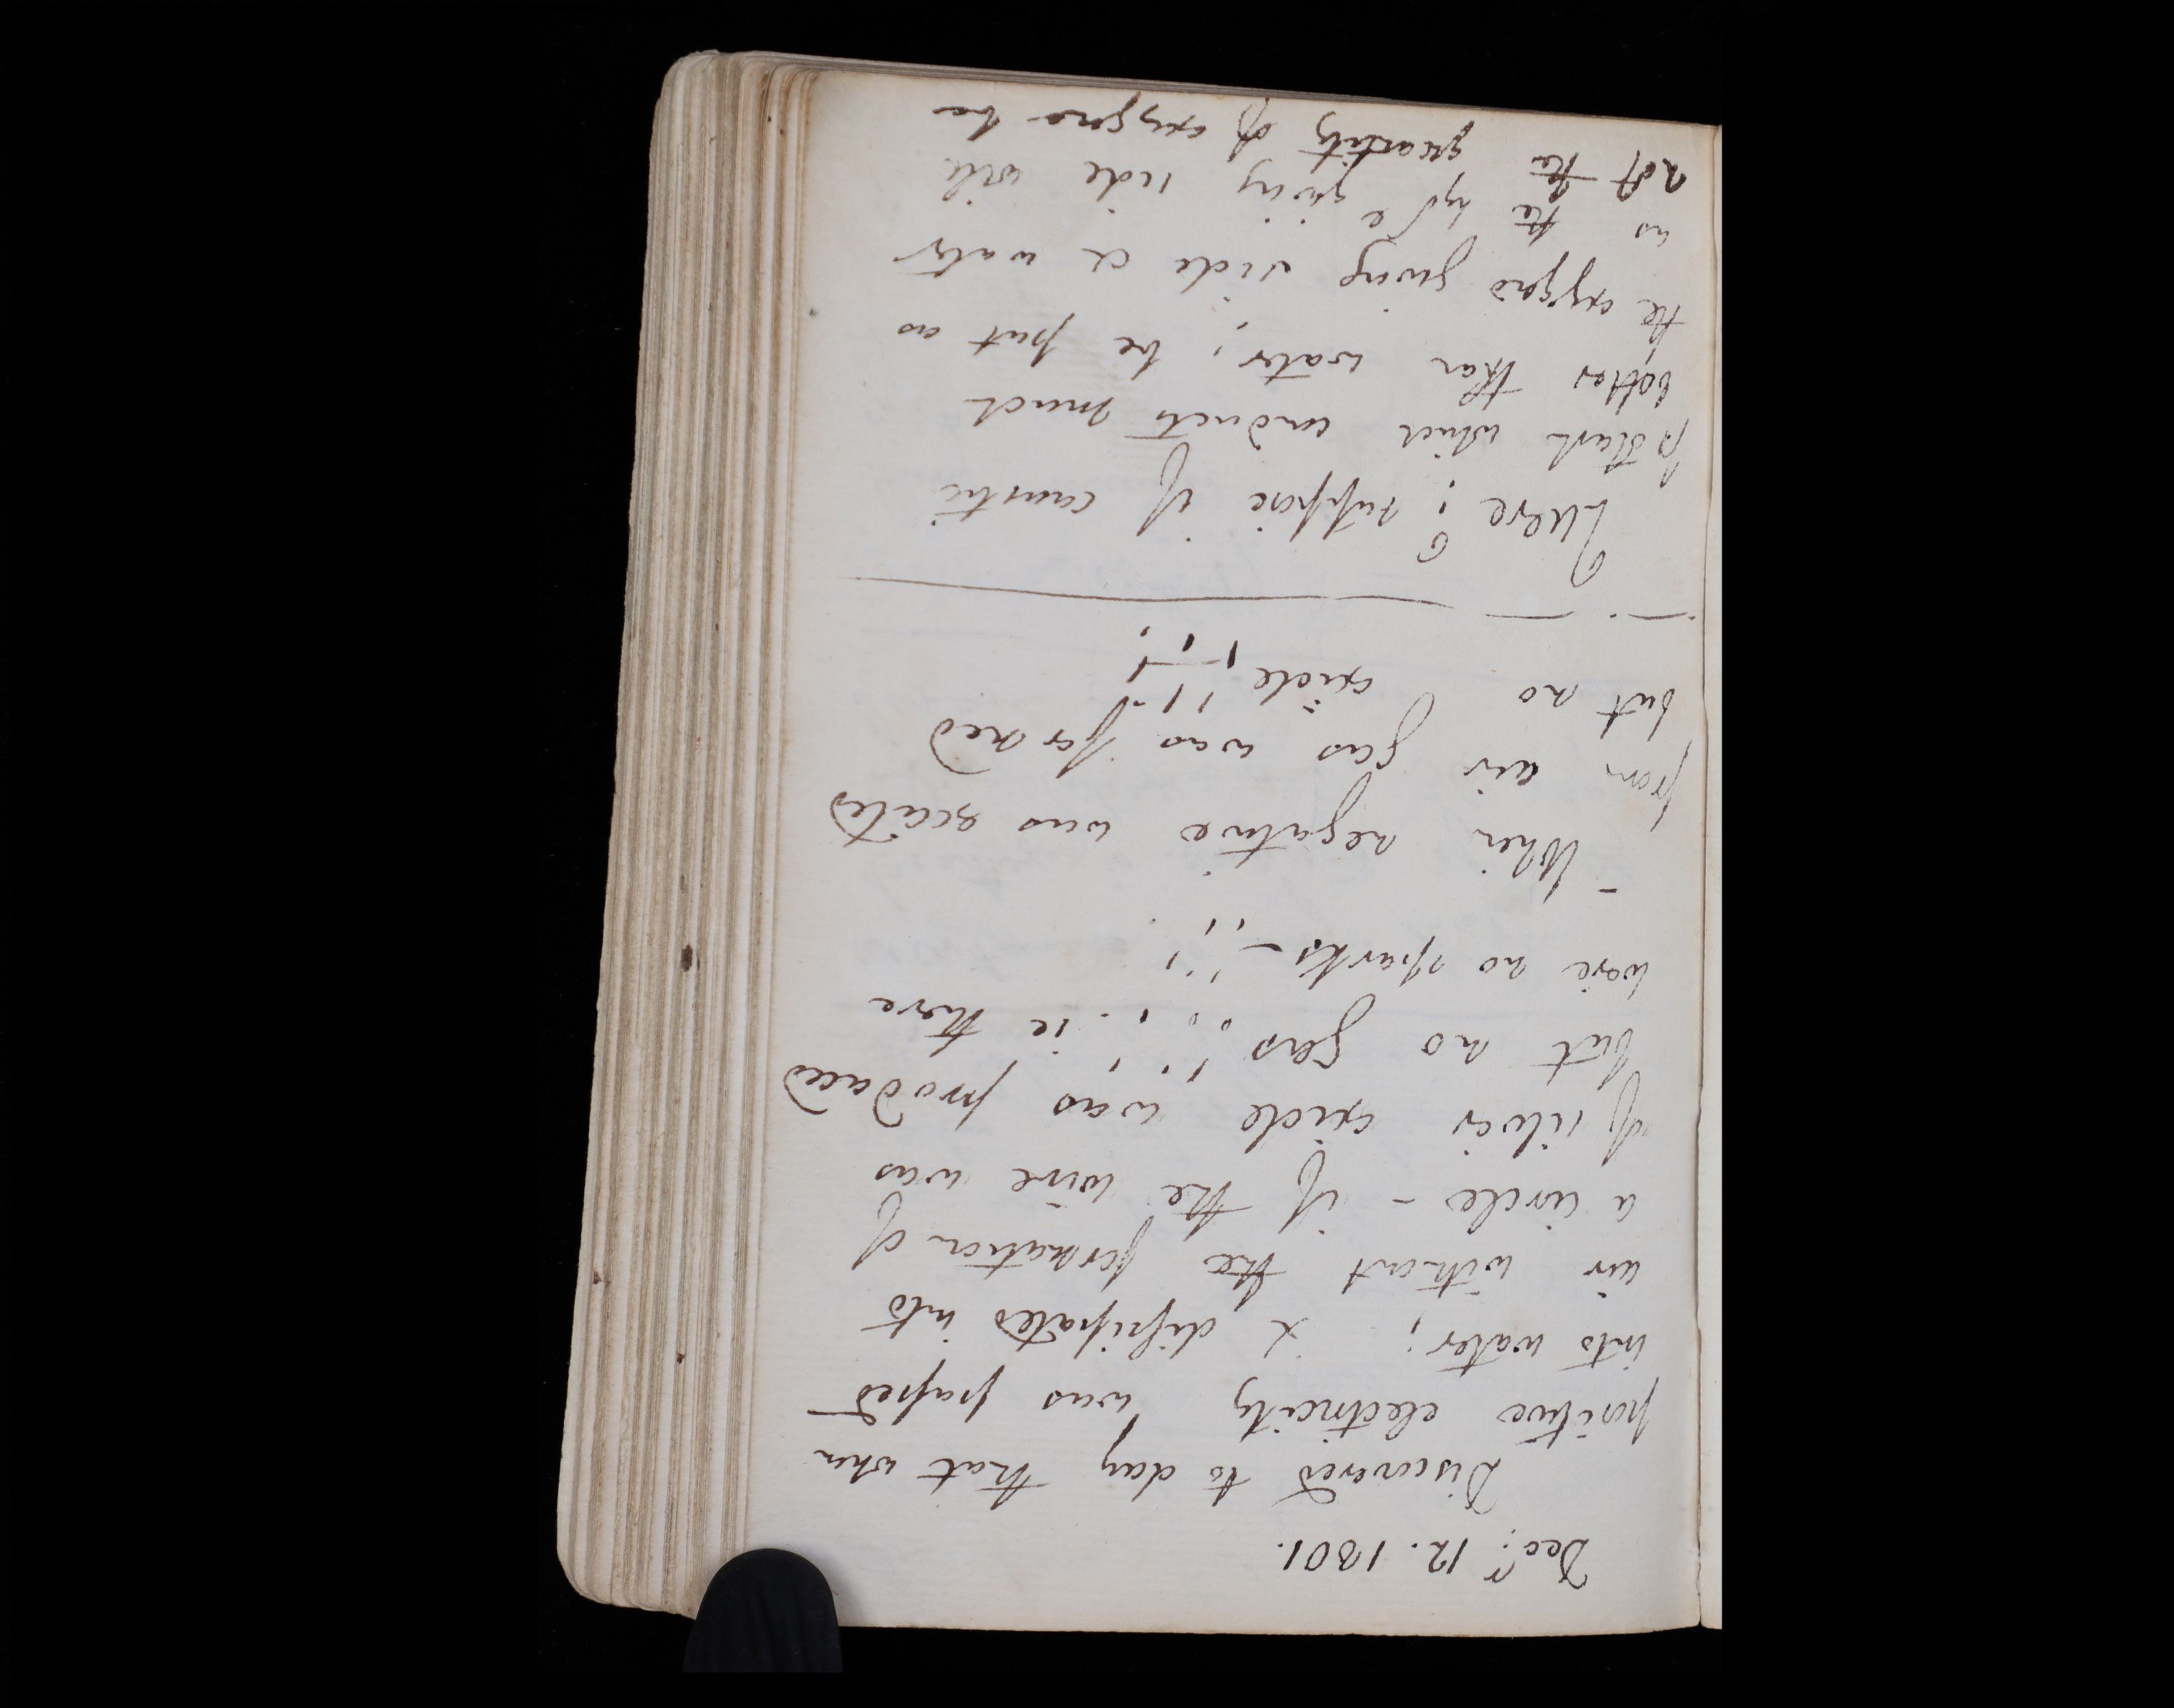 Decr. 12. 1801.
Discovered to day that when
positive electricity was passed
into water; & dissipated into
air without the formation of
a circle - if the wire was
of silver oxide was produced
but no gas, , ,!,! ie there
were no sparks - ,,!!
- When negative was excited
from air gas was formed
but no oxide, , ,!,!
Quere; suppose if caustic
potash which conducts much
better than water, be put as
the oxygene giving side & water
as the hyde giving side will
not the quantity of oxygene be